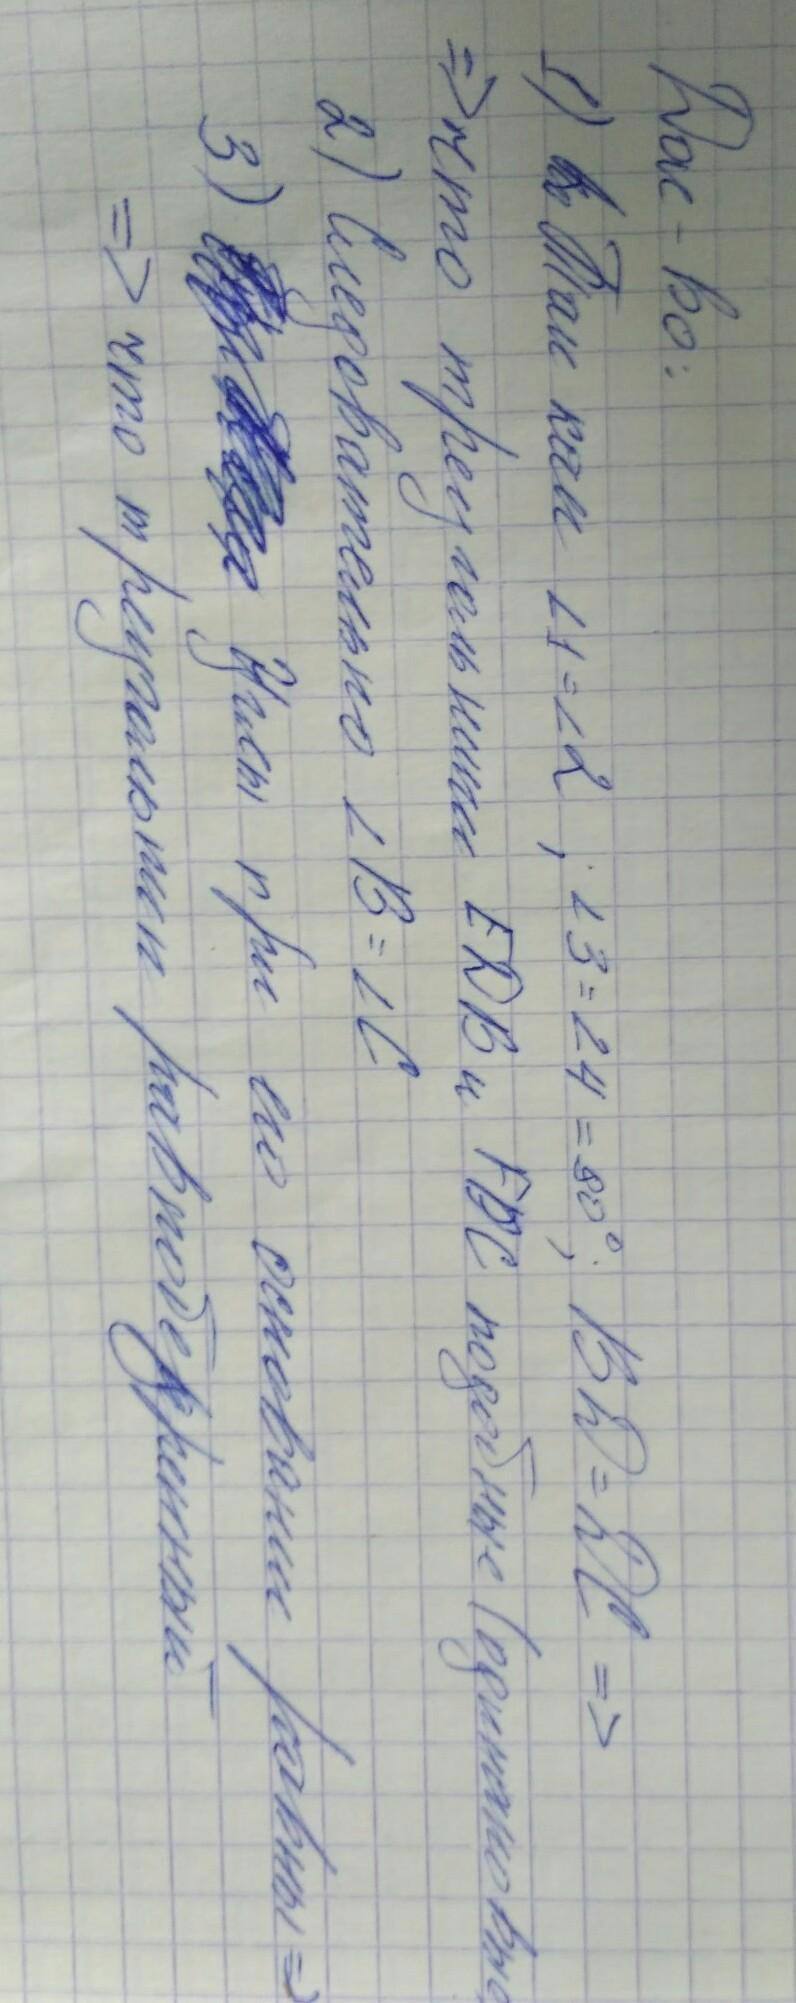 Док-во:
1) Так как ∠1=∠2, ∠3=∠4=90°, BD=DC =>
=> что треугольники EDB и FDC подобные (одинаковые
2) Следовательно ∠B=∠C
3) Углы при его основании равны =>
=> что треугольник равнобедренный